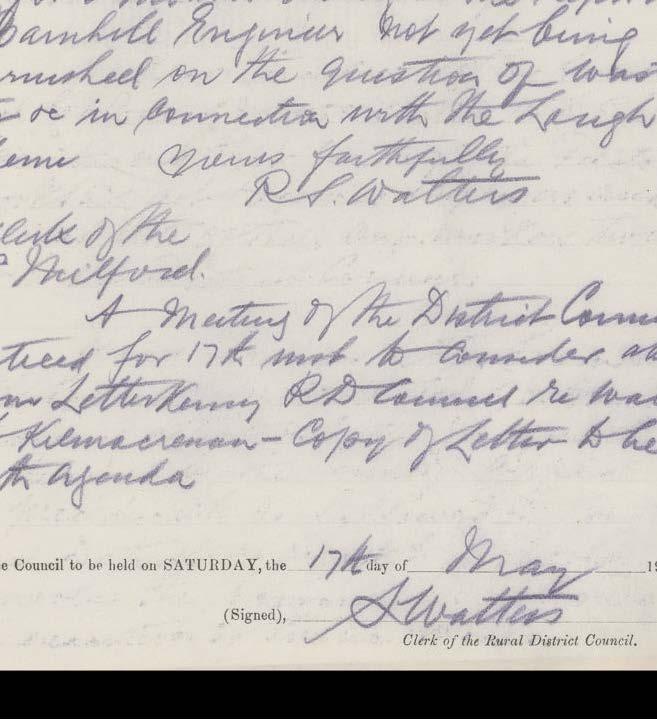 Barnhill Engineer not yet being
rnished on the question of wat
& oc in connection with the Lough
eme Yours faithfully
R S. Watters
lerk of the
C Milford.
A Meeting of the District Counc
ticed for 17th inst to consider ab
Letterkenny RD Council re wat
Kilmacrenan - Copy of Letter to be
th agenda
e Council to be held on SATURDAY, the 17th day of May 19
(Signed), S Watters
Clerk of the Rural District Council.